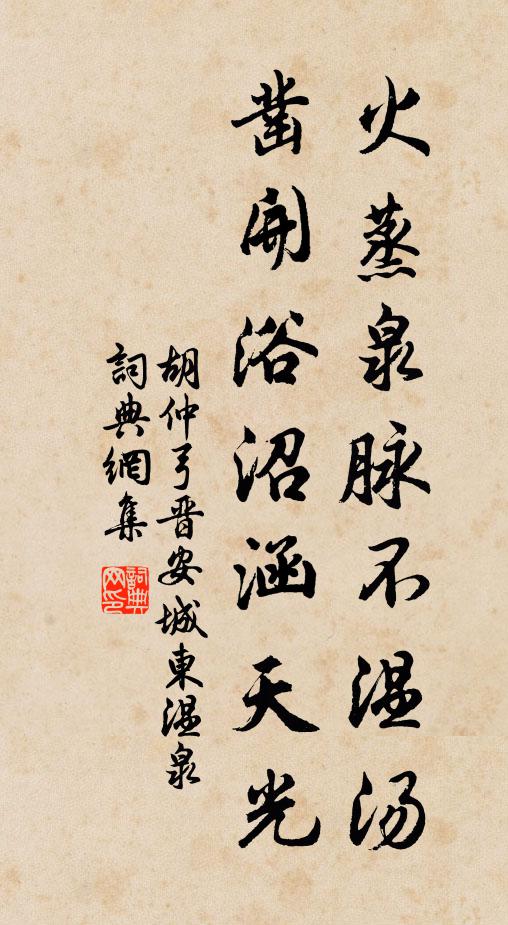 火蒸泉脉不温汤
凿开浴沼涵天光
胡仲弓晋安城東温泉
詞典網集
詞典網印